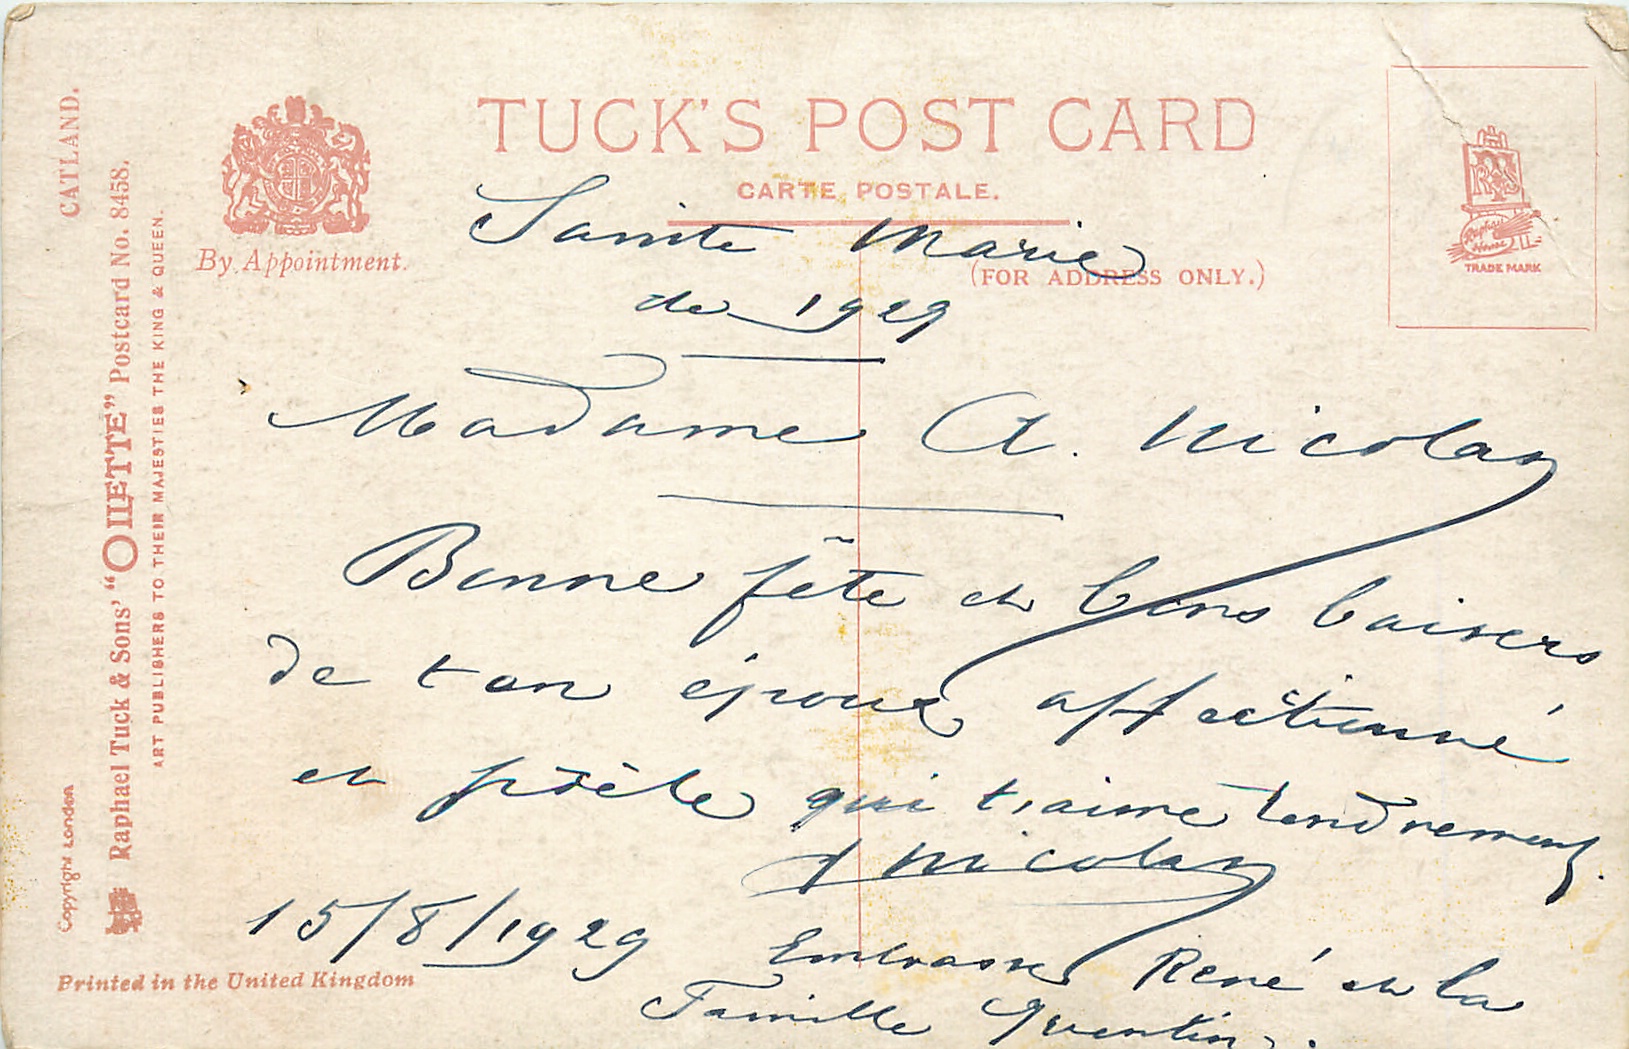 TUCK'S POST CARD
CARTE POSTALE.
(FOR ADDRESS ONLY.)
By Appointment.
CATLAND.
Raphael Tuck & Sons' "OILETTE" Postcard No. 8458.
ART PUBLISHERS TO THEIR MAJESTIES THE KING & QUEEN.
Copyright London
Printed in the United Kingdom
Raphael House
TRADE MARK
Sainte Marie
de 1929
Madame A. Nicolay
Bonne fête et bons baisers
de ton époux affectionné
et poète qui t'aime tendrement.
Nicolay
15/8/1929
Embrasse René et la
Famille Quentin.